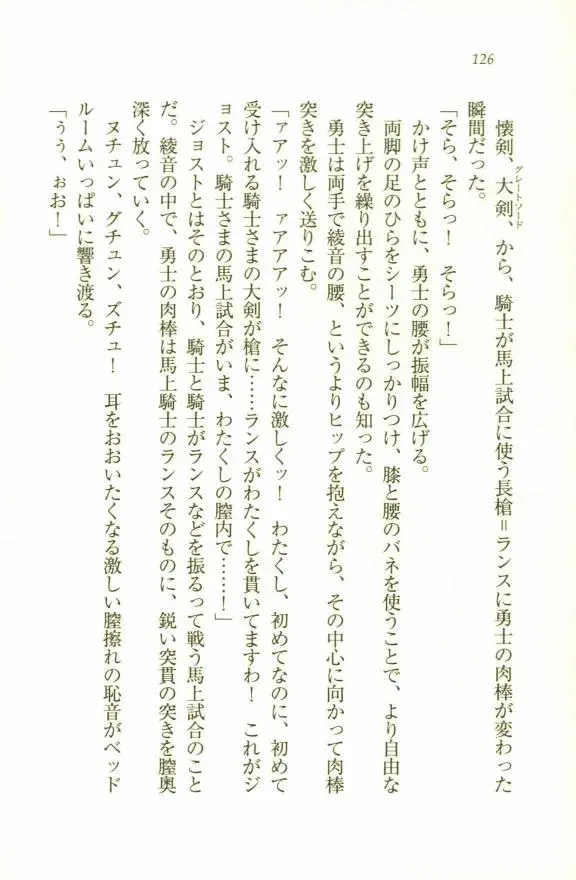 126
懐剣、大剣、から、騎士が馬上試合に使う長槍＝ランスに勇士の肉棒が変わった
グレートソード
瞬間だった。
「そら、そらっ！　そらっ！」
かけ声とともに、勇士の腰が振幅を広げる。
両脚の足のひらをシーツにしっかりつけ、膝と腰のバネを使うことで、より自由な
突き上げを繰り出すことができるのも知った。
勇士は両手で綾音の腰、というよりヒップを抱えながら、その中心に向かって肉棒
突きを激しく送りこむ。
「ァアッ！　ァアアアッ！　そんなに激しくッ！　わたくし、初めてなのに、初めて
受け入れる騎士さまの大剣が槍に……ランスがわたくしを貫いてますわ！　これがジ
ョスト。騎士さまの馬上試合がいま、わたくしの膣内で……！」
ジョストとはそのとおり、騎士と騎士がランスなどを振るって戦う馬上試合のこと
だ。綾音の中で、勇士の肉棒は馬上騎士のランスそのものに、鋭い突貫の突きを膣奥
深く放っていく。
ヌチュン、グチュン、ズチュ！　耳をおおいたくなる激しい膣擦れの恥音がベッド
ルームいっぱいに響き渡る。
「うぅ、ぉお！」